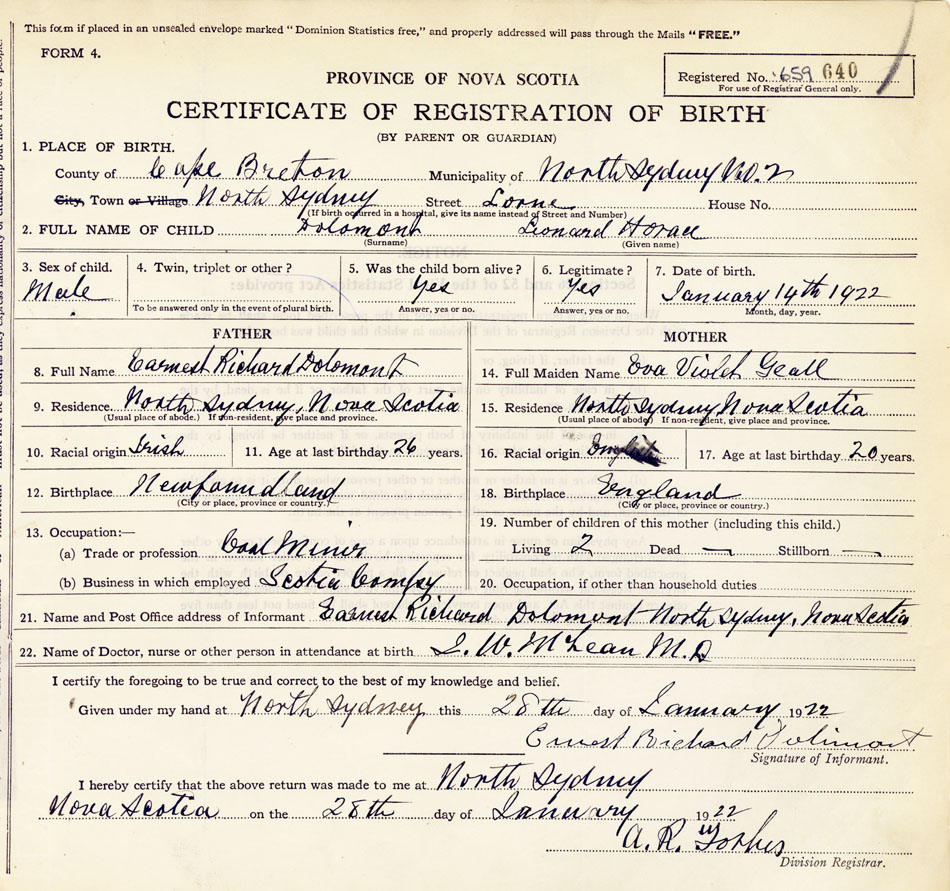 This form if placed in an unsealed envelope marked "Dominion Statistics free," and properly addressed will pass through the Mails "FREE."
FORM 4.
Registered No. 659 640
For use of Registrar General only.
PROVINCE OF NOVA SCOTIA
CERTIFICATE OF REGISTRATION OF BIRTH
(BY PARENT OR GUARDIAN)
1. PLACE OF BIRTH.
County of Cape Breton Municipality of North Sydney No. 2
City, Town or Village North Sydney Street Lorne House No.
(If birth occurred in a hospital, give its name instead of Street and Number)
2. FULL NAME OF CHILD Dolomont Leonard Horace
(Surname) (Given name)
3. Sex of child. 4. Twin, triplet or other? 5. Was the child born alive? 6. Legitimate? 7. Date of birth.
Male Yes Yes January 14th 1922
To be answered only in the event of plural birth. Answer, yes or no. Answer, yes or no. Month, day, year.
FATHER MOTHER
8. Full Name Earnest Richard Dolomont 14. Full Maiden Name Eva Violet Geall
9. Residence North Sydney, Nova Scotia 15. Residence North Sydney Nova Scotia
(Usual place of abode.) If non-resident, give place and province. (Usual place of abode) If non-resident, give place and province.
10. Racial origin Irish 11. Age at last birthday 26 years. 16. Racial origin English 17. Age at last birthday 20 years.
12. Birthplace Newfoundland 18. Birthplace England
(City or place, province or country.) (City or place, province or country.)
13. Occupation:— 19. Number of children of this mother (including this child.)
(a) Trade or profession Coal Miner Living 2 Dead — Stillborn —
(b) Business in which employed Scotia Compy 20. Occupation, if other than household duties
21. Name and Post Office address of Informant Earnest Richard Dolomont North Sydney, Nova Scotia
22. Name of Doctor, nurse or other person in attendance at birth L. W. McLean M.D
I certify the foregoing to be true and correct to the best of my knowledge and belief.
Given under my hand at North Sydney this 28th day of January 1922
Ernest Richard Dolimont
Signature of Informant.
I hereby certify that the above return was made to me at North Sydney
Nova Scotia on the 28th day of January 1922
A. R. Forbes
Division Registrar.